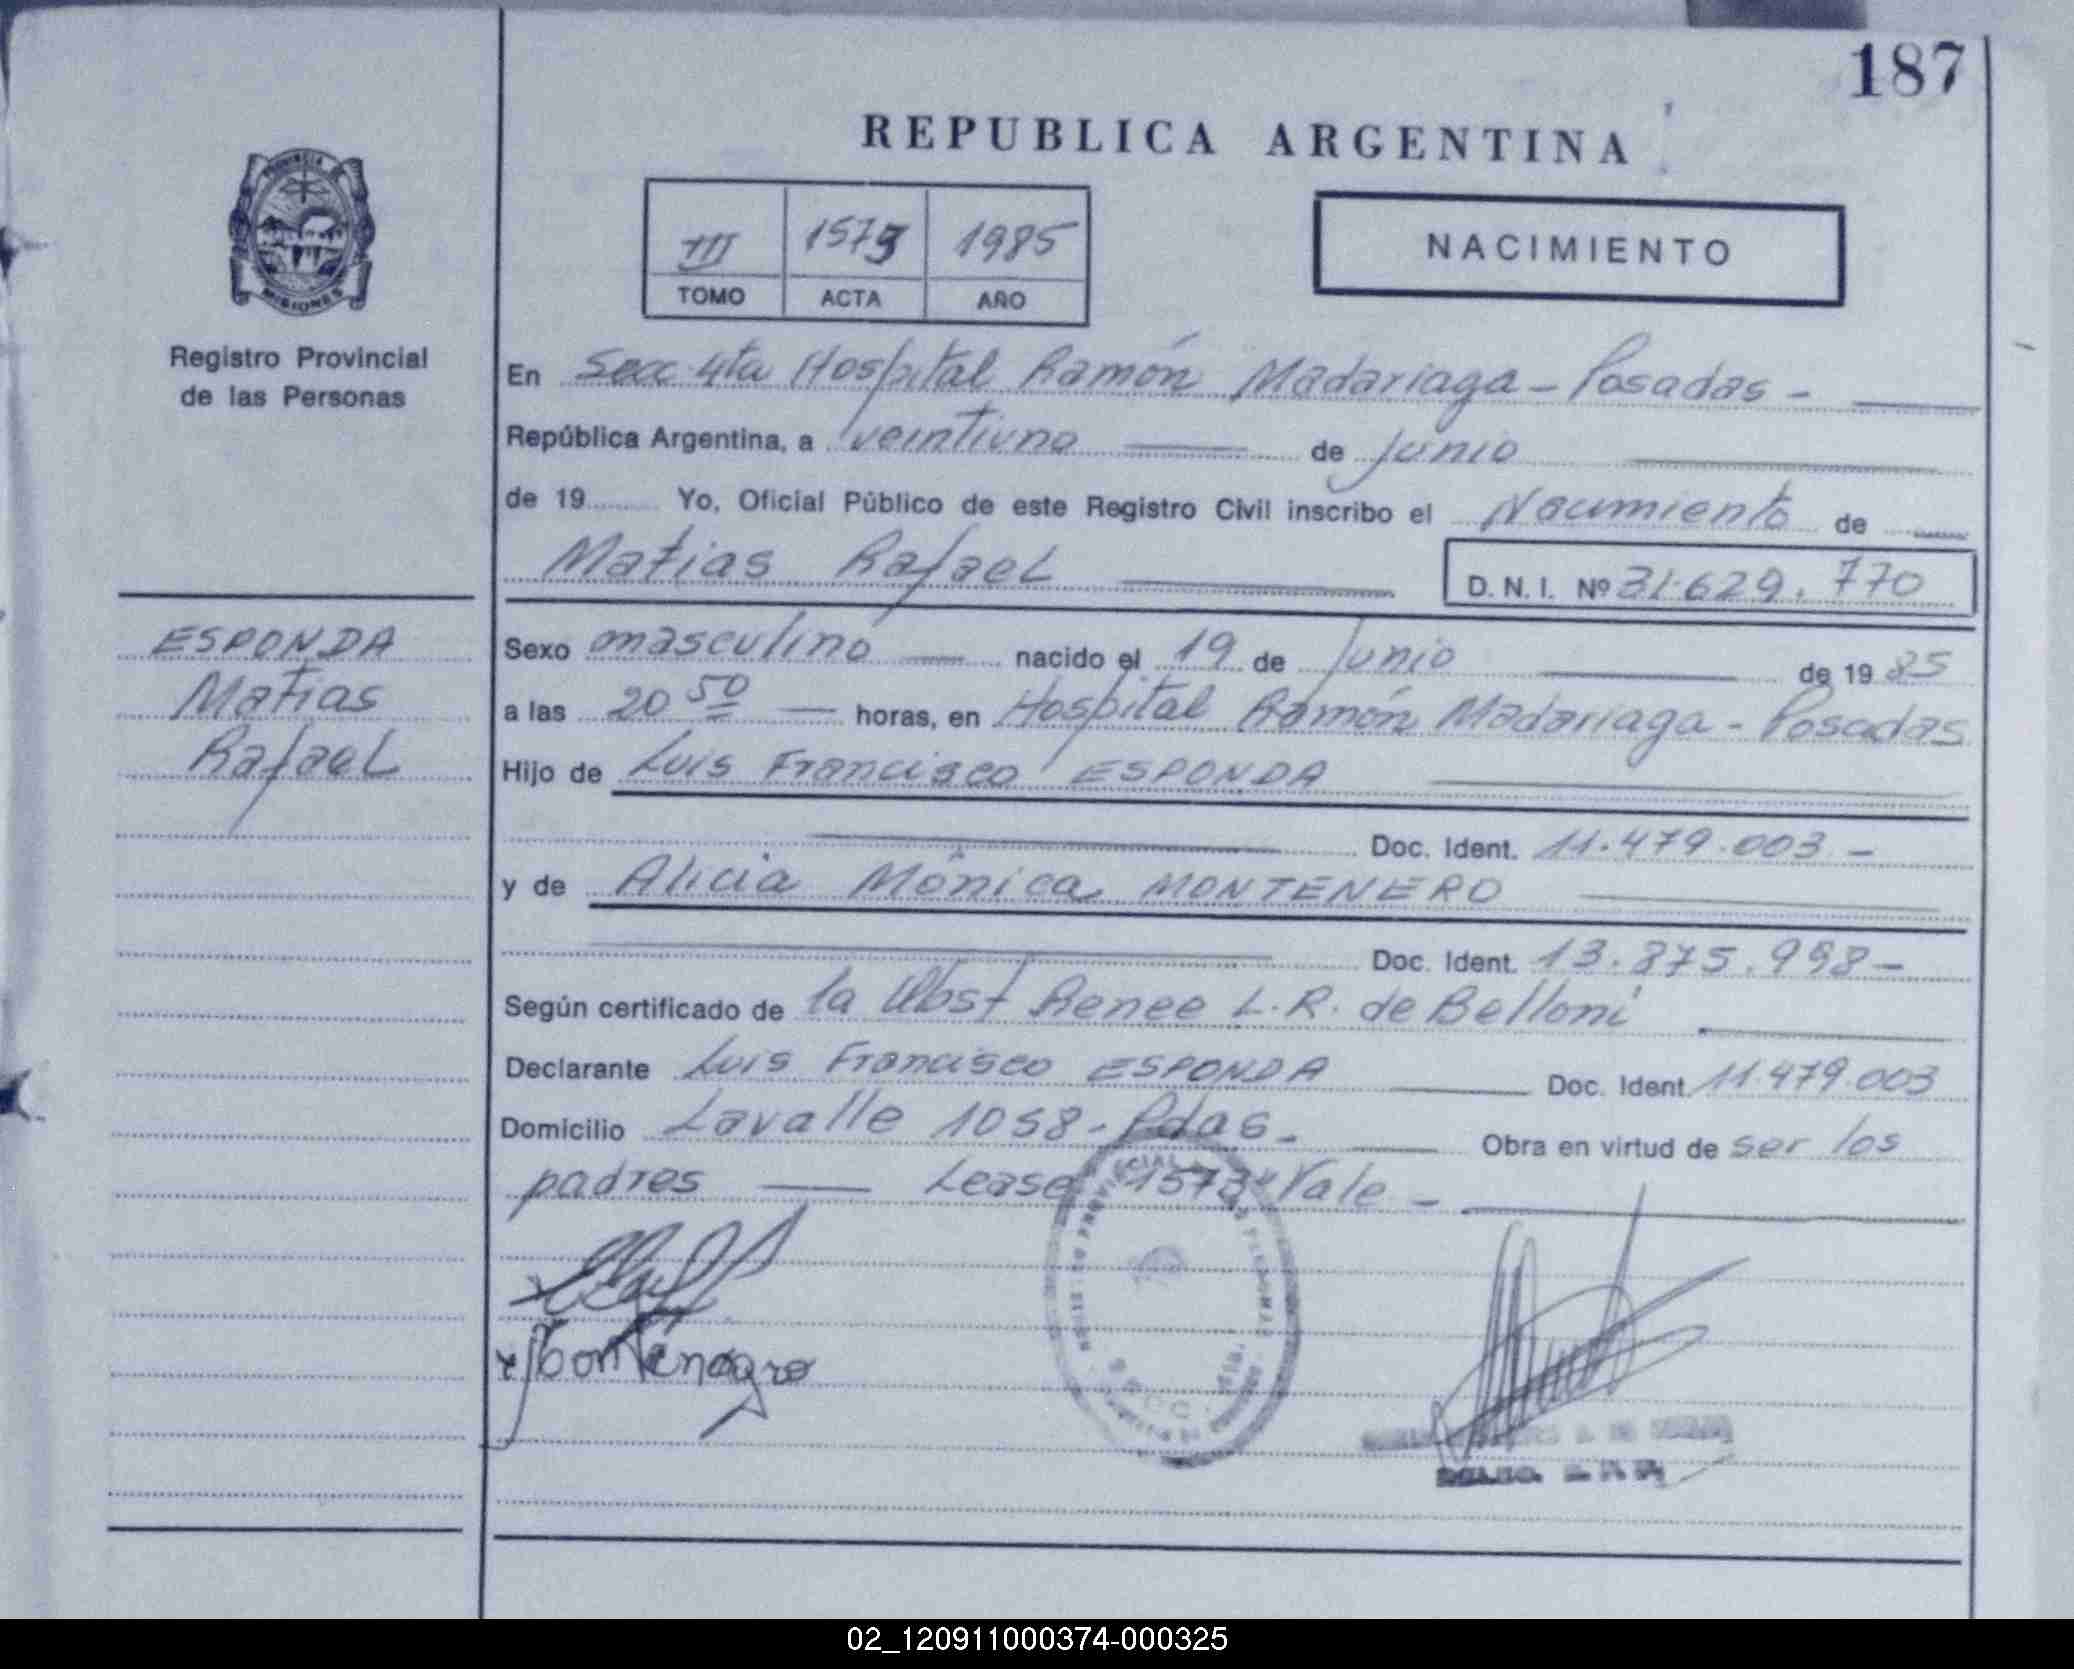 187
REPUBLICA ARGENTINA
PROVINCIA DE
MISIONES
Registro Provincial
de las Personas
III 1573 1985
TOMO ACTA AÑO
NACIMIENTO
En Secc 4ta Hospital Ramón Madariaga - Posadas -
República Argentina, a veintiuno de junio
de 19 Yo, Oficial Público de este Registro Civil inscribo el Nacimiento de
Matias Rafael D. N. I. Nº 31.629.770
ESPONDA
Matias
Rafael
Sexo masculino nacido el 19 de Junio de 19 85
a las 20 50 horas, en Hospital Ramón Madariaga - Posadas
Hijo de Luis Francisco ESPONDA
Doc. Ident. 11.479.003 -
y de Alicia Mónica MONTENERO
Doc. Ident. 13.875.998 -
Según certificado de la Obst Renee L. R. de Belloni
Declarante Luis Francisco ESPONDA Doc. Ident. 11.479.003
Domicilio Lavalle 1058 - Pdas - Obra en virtud de ser los
padres Lease "1573" Vale -
02_120911000374-000325